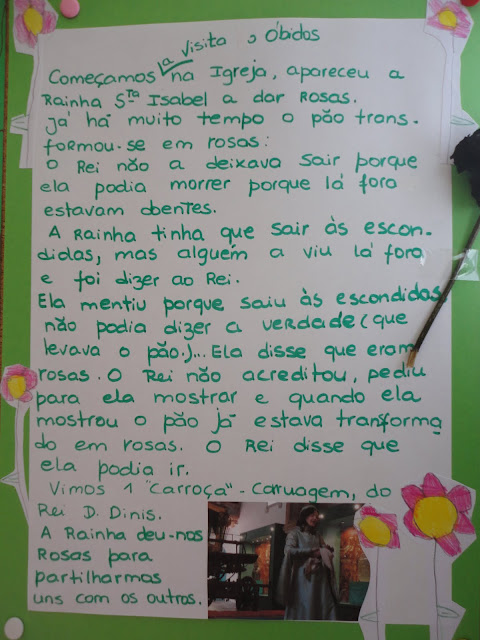 Começamos a visita a Óbidos
na Igreja, apareceu a
Rainha Sta Isabel a dar Rosas.
Já há muito tempo o pão trans-
formou-se em rosas:
O Rei não a deixava sair porque
ela podia morrer porque lá fora
estavam doentes.
A Rainha tinha que sair às escon-
didas, mas alguém a viu lá fora
e foi dizer ao Rei.
Ela mentiu porque saiu às escondidas
não podia dizer a verdade (que
levava o pão.)... Ela disse que eram
rosas. O Rei não acreditou, pediu
para ela mostrar e quando ela
mostrou o pão já estava transforma
do em rosas. O Rei disse que
ela podia ir.
Vimos 1 "Carroça" - Carruagem, do
Rei D. Dinis.
A Rainha deu-nos
Rosas para
partilharmos
uns com os outros.